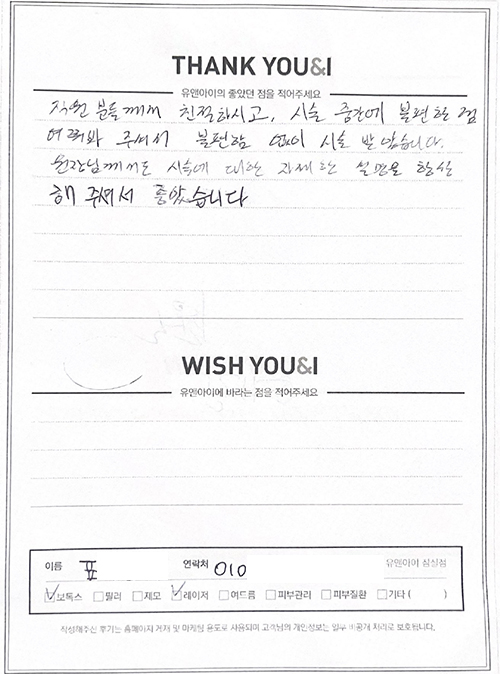 THANK YOU&I
유앤아이의 좋았던 점을 적어주세요
직원 분들께서 친절하시고, 시술 중간에 불편한 점
여쭤봐 주셔서 불편함 없이 시술 받았습니다.
원장님께서도 시술에 대한 자세한 설명을 항상
해 주셔서 좋았습니다
WISH YOU&I
유앤아이에 바라는 점을 적어주세요
이름 표 연락처 010 유앤아이 삼성점
보톡스 필러 제모 레이저 여드름 피부관리 피부질환 기타 ( )
작성해주신 후기는 홈페이지 게재 및 마케팅 용도로 사용되며 고객님의 개인정보는 일부 비공개 처리로 보호됩니다.